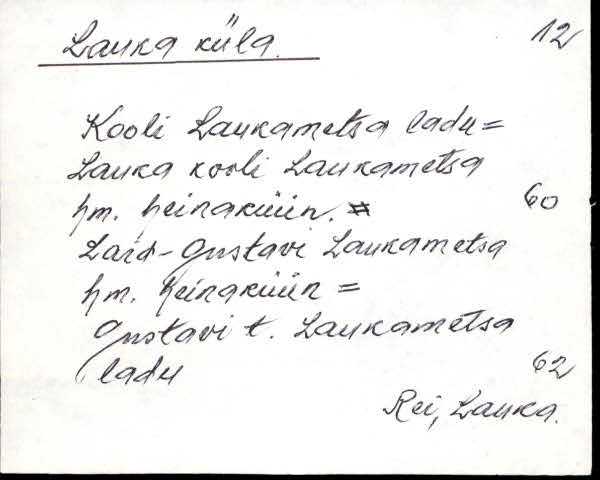 Lauka küla. 12
Kooli Laukametsa ladu =
Lauka kooli Laukametsa
hm. heinaküün. 60
Laid-Gustavi Laukametsa
hm. heinaküün =
Gustavi t. Laukametsa
ladu 62
Rei, Lauka.